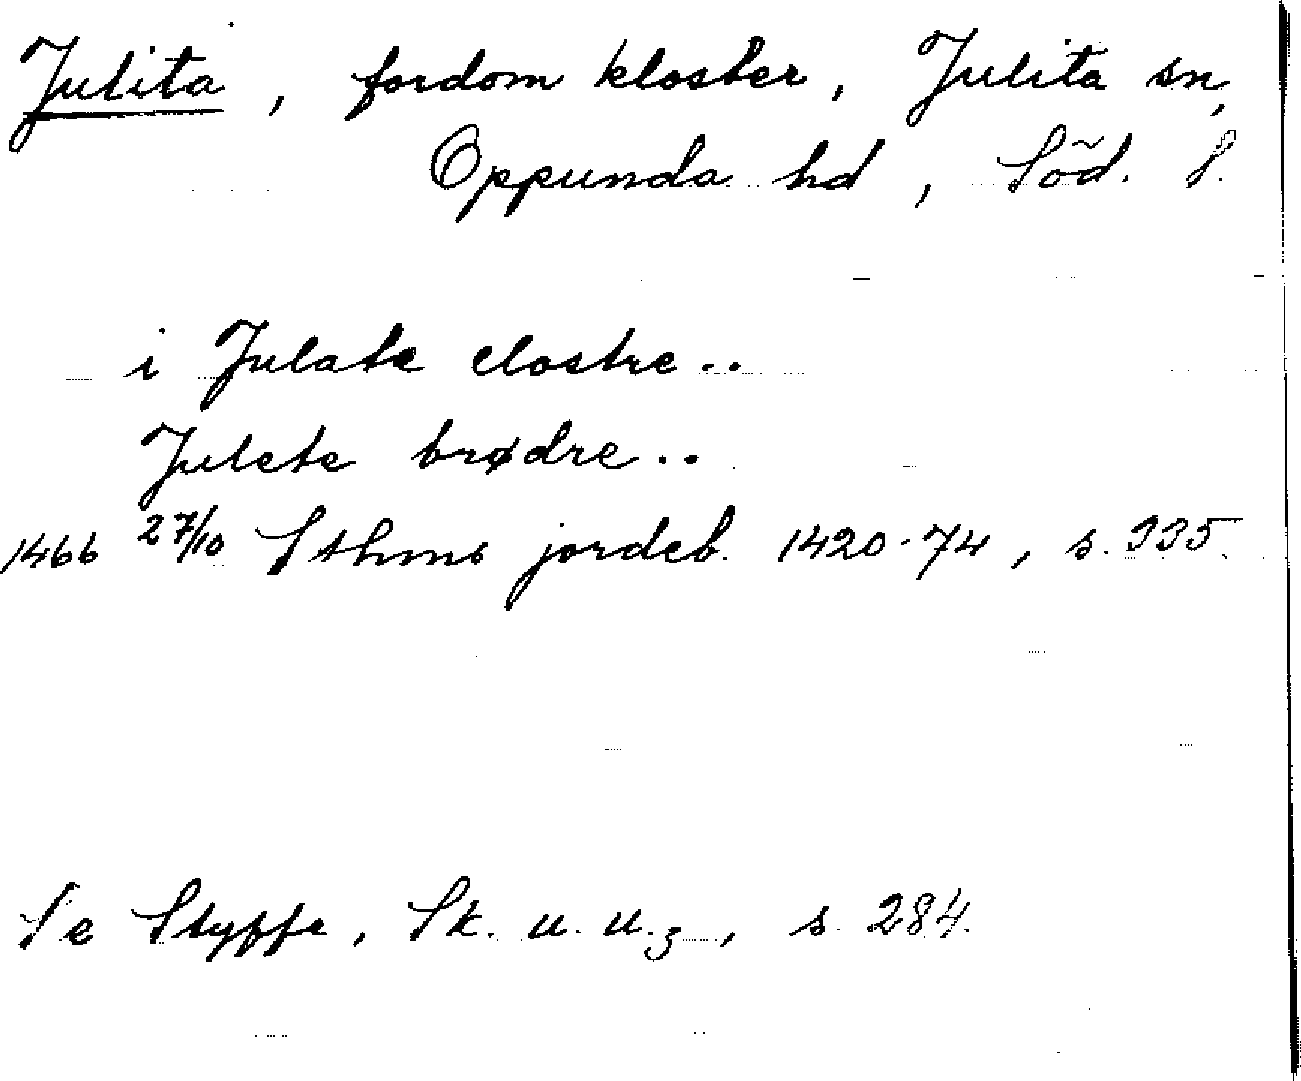 Julita, fordom kloster, Julita sn,
Oppunda hd, Söd. l.
i Julate clostre..
Julete brødre..
1466 27/10 Sthms jordeb. 1420-74, s. 335.
Se Styffe, Sk. u. u.3, s. 284.